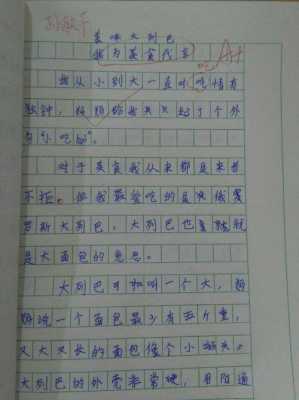 美味大列巴
我为美食代言
吃 A+
我从小到大一直对吃情有
独钟，妈妈你爸爸给起了个外
号“小吃货”。
对于美食我从来都是来者
不拒。但我最爱吃的是俄
罗斯大列巴，大列巴也就
是大面包的意思。
大列巴可和叫一个大，妈
妈说一个面包最少有五斤重，
又大又长的面包像个小枕头。
大列巴的外壳非常硬，用的通